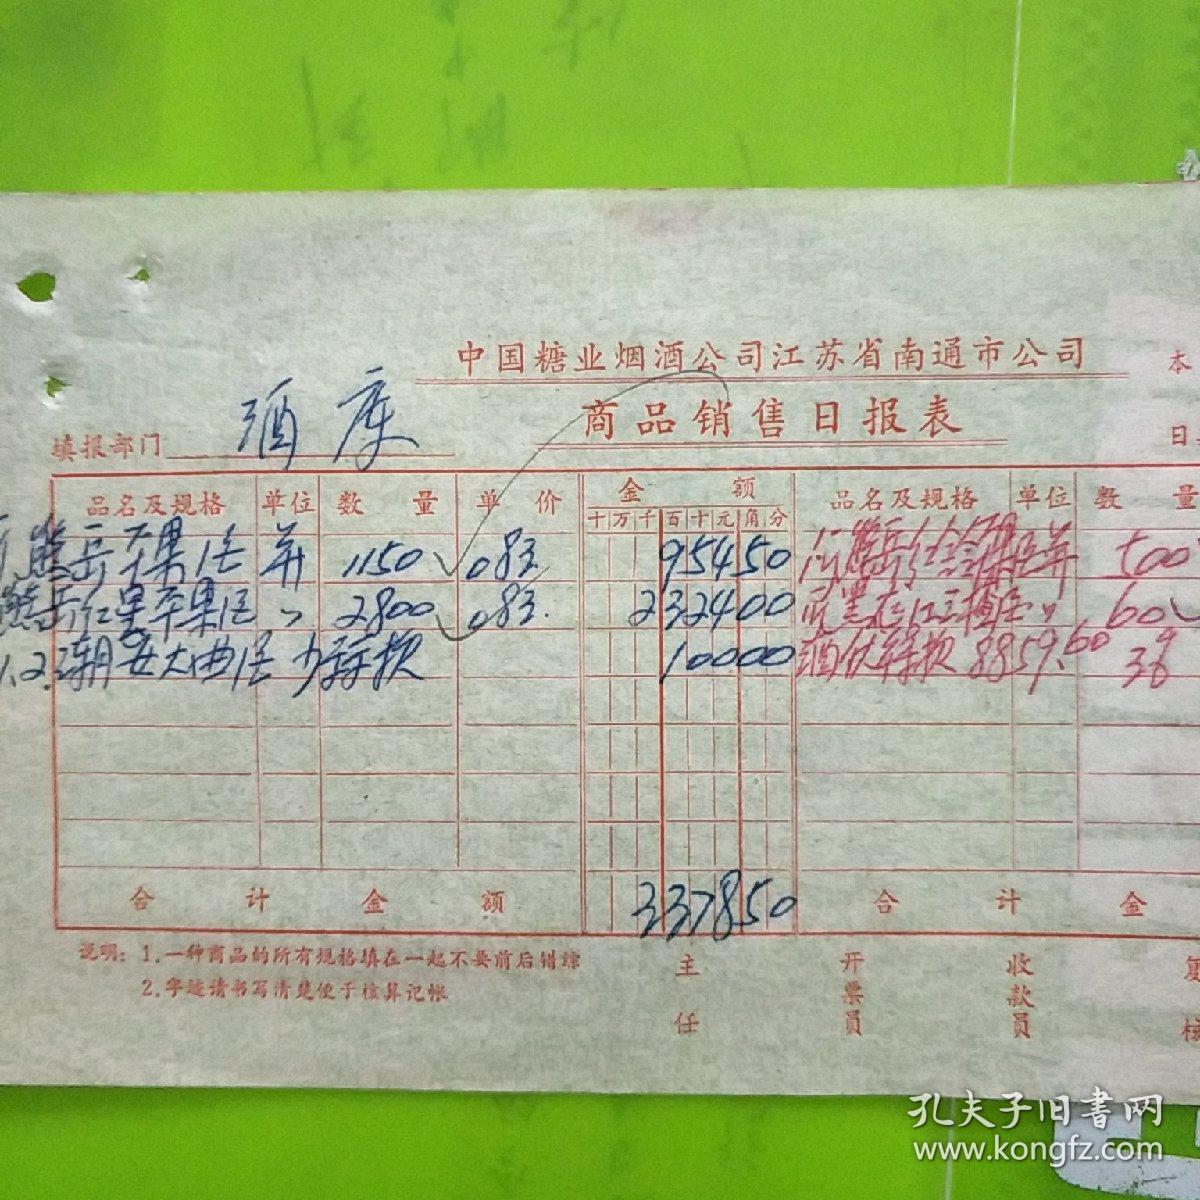 中国糖业烟酒公司江苏省南通市公司 本
填报部门 酒库 商品销售日报表 日
品名及规格 单位 数量 单价 金额 品名及规格 单位 数量
十 万 千 百 十 元 角 分
熊岳苹果酒 并 1150 083 95450 500
熊岳红星苹果酒 〃 2800 083. 232400 〃 60
1.2. 安大曲酒 100.00 8859.60 38
合计金额 337850 合计金
说明：1.一种商品的所有规格填在一起不要前后错综
2.字迹请书写清楚便于核算记帐
主任 开票员 收款员 复核
孔夫子旧书网
www.kongfz.com